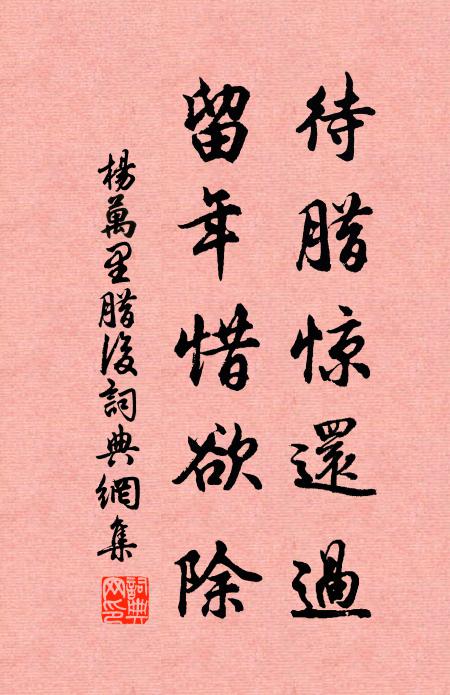 待腊惊還過
留年惜欲除
楊萬里腊後詞典網集
詞典网印